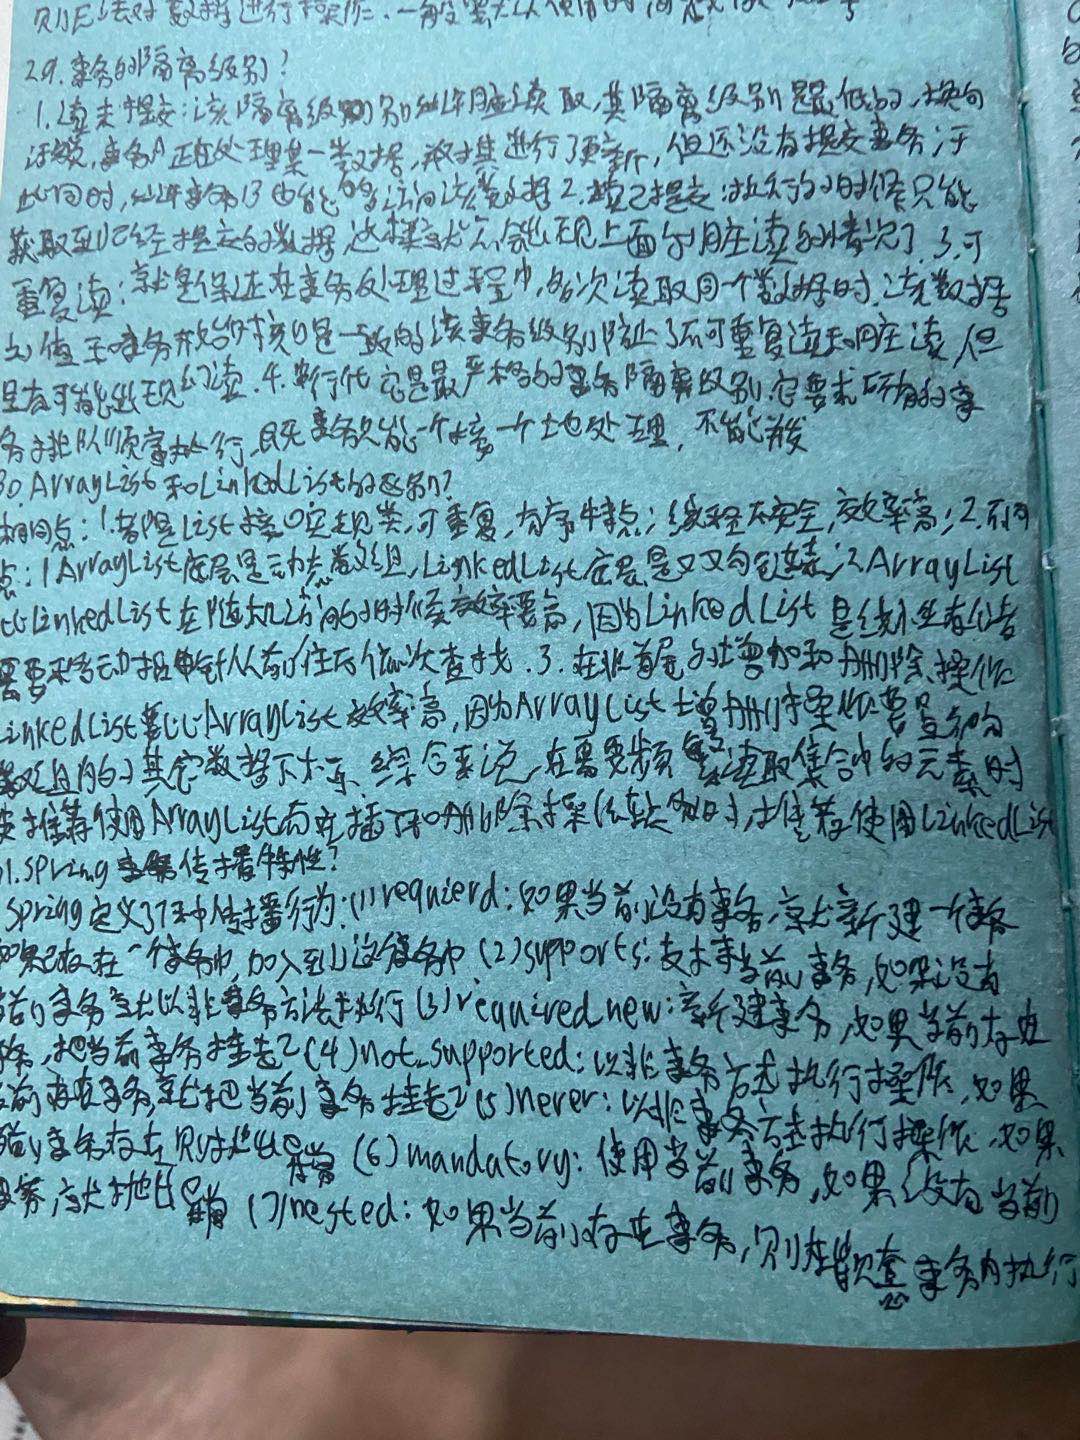 则无法对数据进行操作.一般
29.事务的隔离级别?
1.读未提交:该隔离级别 脏读取,其隔离级别最低的,换句
话说,事务A正在处理某一数据,对其进行了更新,但还没有提交事务,于
此同时,允许事务B也能够访问该数据 2.读已提交:执行的时候只能
获取到已经提交的数据,这样就不会出现上面的脏读的情况了.3.可
重复读:就是保证在事务处理过程中,多次读取同一个数据时,该数据
的值和事务开始时候是一致的该事务级别防止了不可重复读和脏读,但
是有可能出现幻读.4.串行化:它是最严格的事务隔离级别,它要求所有的事
务排队顺序执行,即事务只能一个接一个地处理,不能并发
30.ArrayList和LinkedList的区别?
相同点:1.都是List接口实现类,可重复,有序特点;线程不安全,效率高;2.不同
点:1.ArrayList底层是动态数组,LinkedList底层是双向链表;2.ArrayList
比LinkedList在随机访问的时候效率要高,因为LinkedList是线性存储
需要移动指针从前往后依次查找.3.在非首尾的增加和删除操作
LinkedList要比ArrayList效率高,因为ArrayList增删操作要影响
数组内的其它数据下标.综合来说,在需要频繁读取集合中的元素时
更推荐使用ArrayList而在插入和删除操作较多时,推荐使用LinkedList
31.Spring事务传播特性?
Spring定义了7种传播行为:(1)requierd:如果当前没有事务,就新建一个事务
如果已存在一个事务中,加入到这个事务中(2)supports:支持当前事务,如果没有
当前事务就以非事务方法执行(3)required_new:新建事务,如果当前存在
事务,把当前事务挂起(4)not_supported:以非事务方式执行操作,如果
当前存在事务,就把当前事务挂起(5)never:以非事务方式执行操作,如果
当前事务存在则抛出异常(6)mandatory:使用当前事务,如果没有当前
事务,就抛出异常(7)nested:如果当前存在事务,则在嵌套事务内执行